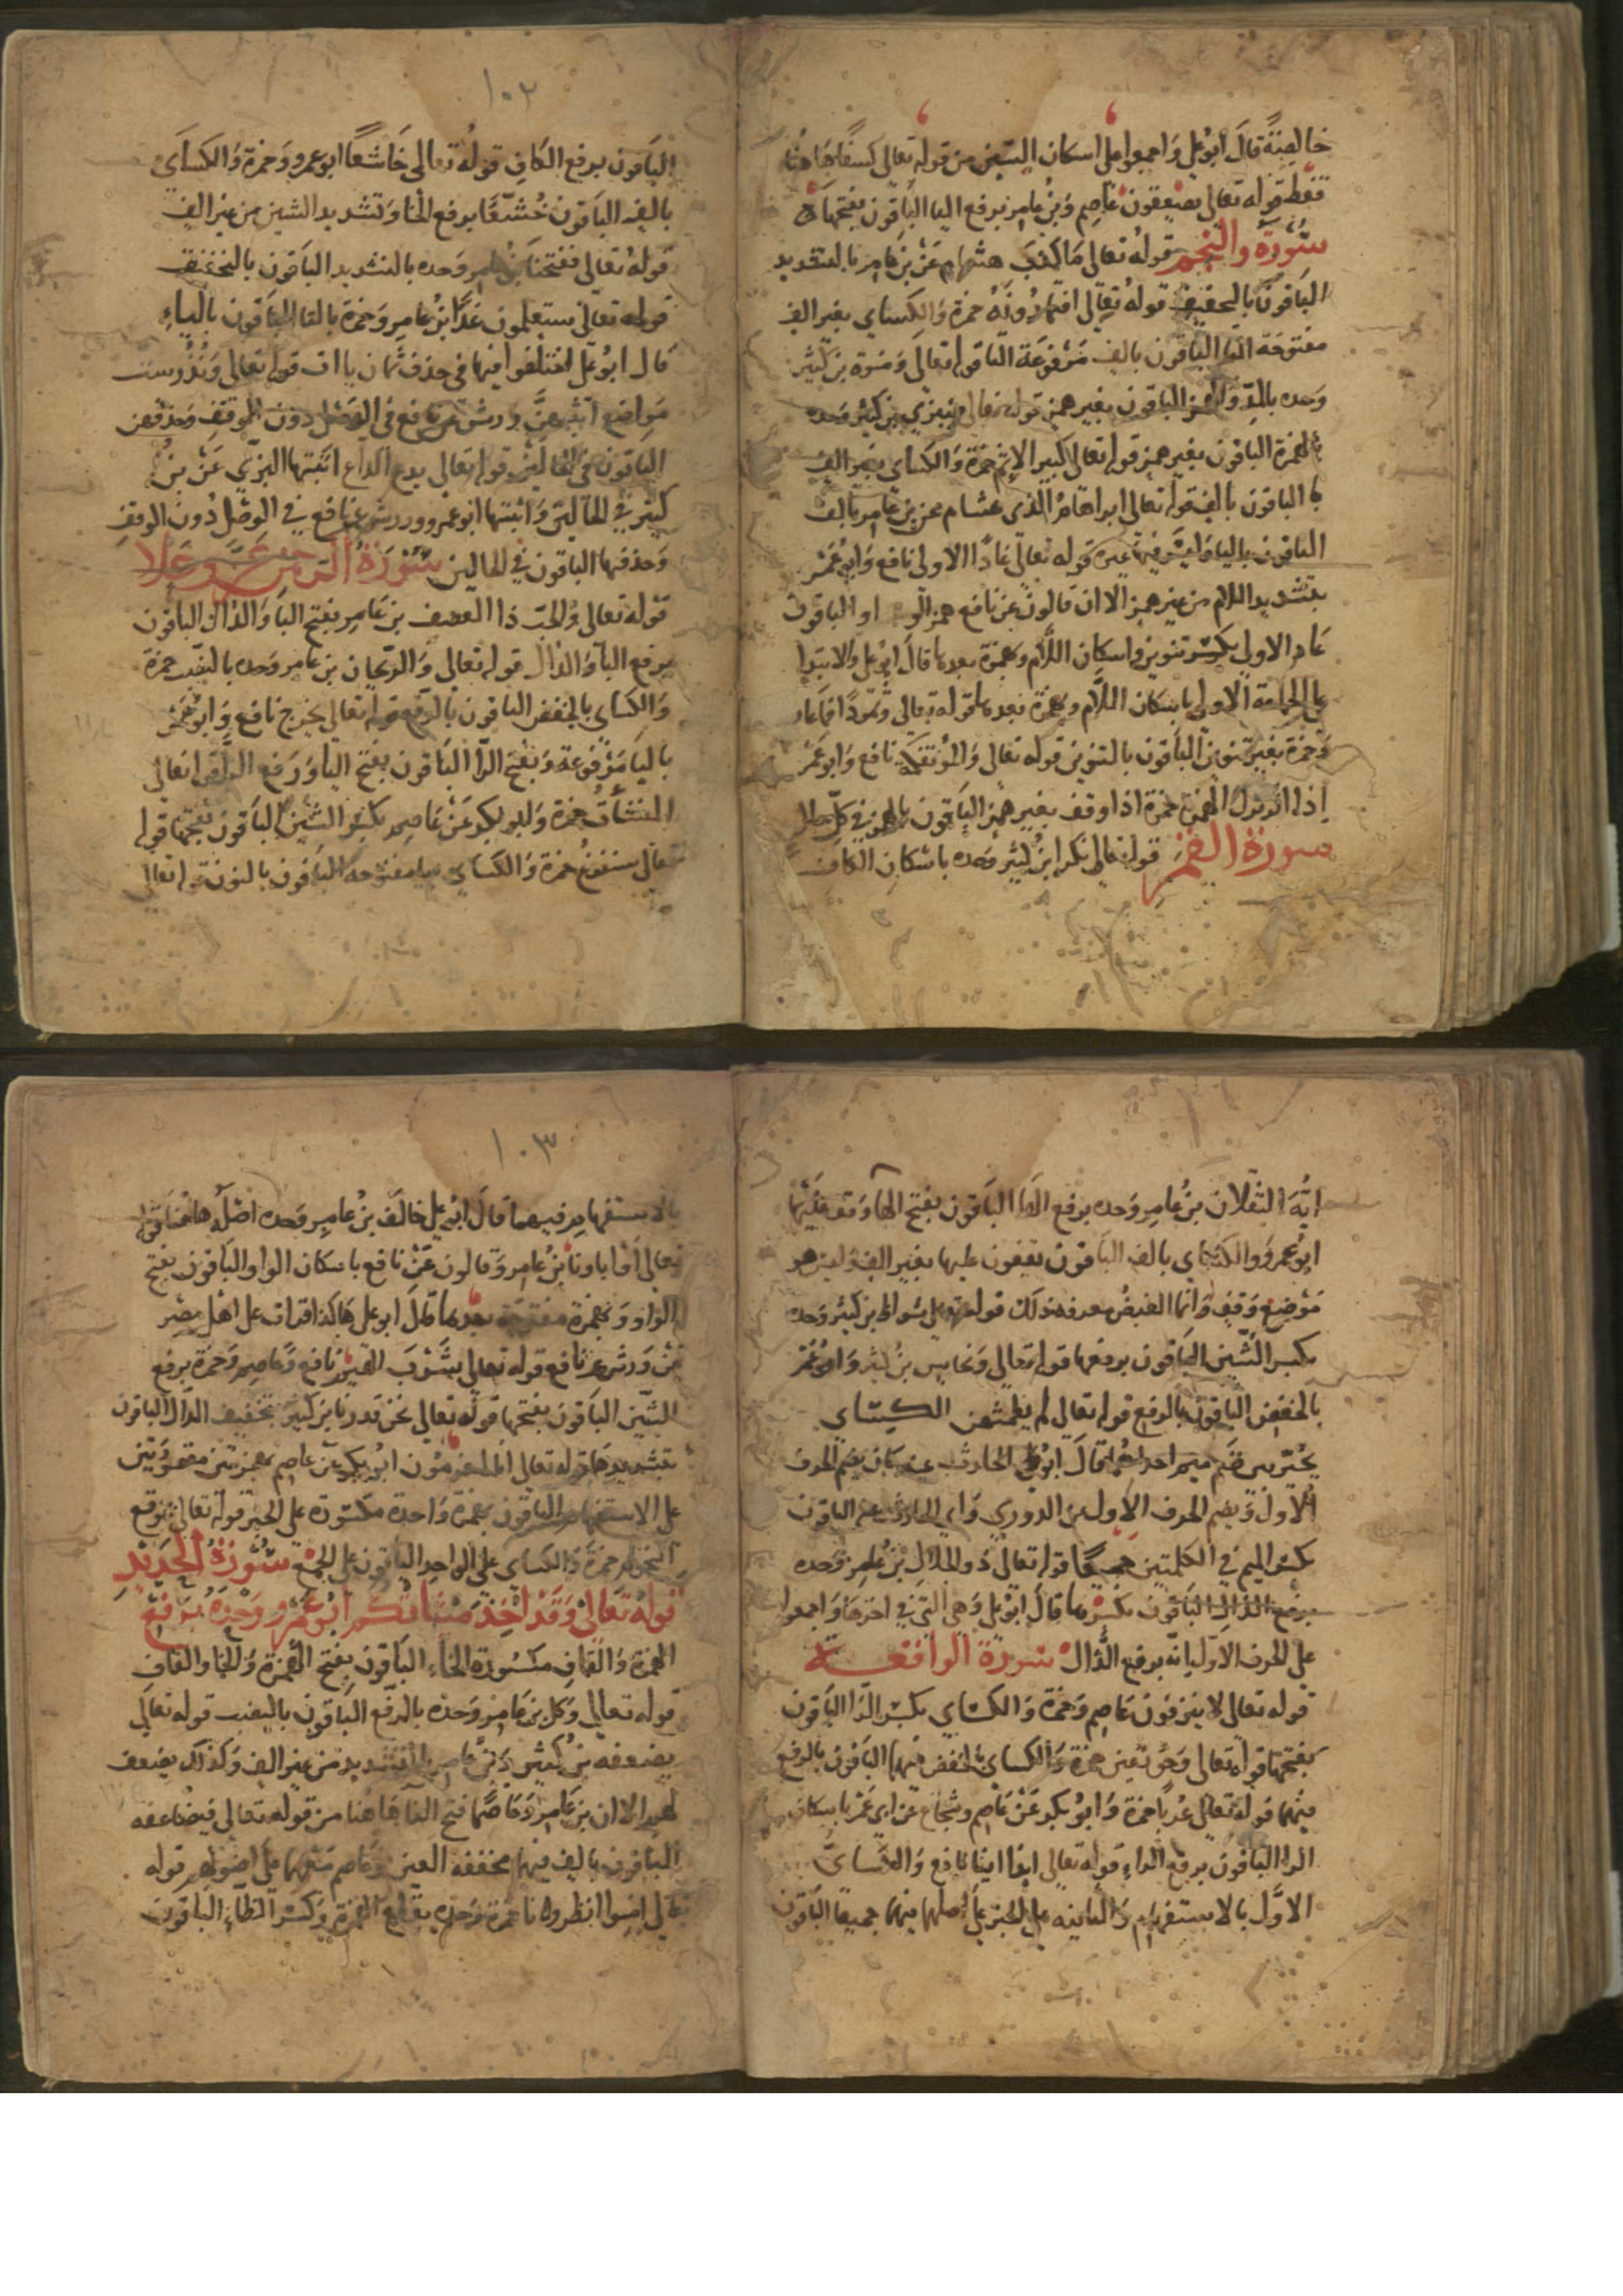 خالصة قال ابو على واجمعوا على اسكان السين من قوله تعالى كسفا هاهنا
فقط قوله تعالى يصعقون عاصم وبن عامر برفع اليا الباقون بفتحها
سورة والنجم قوله تعالى ما كذب هشام عن بن عامر بالتشديد
الباقون بالتخفيف قوله تعالى افتمارونه حمزة والكساى بغير الف
مفتوحة التا الباقون بالف مرفوعة التا قوله تعالى ومنوة بن كثير
وحده بالمد والهمز الباقون بغير همز قوله تعالى ضيزى بن كثير وحده
بالهمزة الباقون بغير همز قوله تعالى كبير الاثم حمزة والكساى بغير الف
با الباقون بالف قوله تعالى ابراهام الذى هشام عن بن عامر بالف
الباقون باليا وليس فيها غيره قوله تعالى عادا الاولى نافع وابو عمر
بتشديد اللام من غير همز الا ان قالون عن نافع همز الواو الباقون
عاد الاولى بكسر تنوين واسكان اللام وهمزة بعدها قال ابو على والابتدا
على الجماعة الاولى باسكان اللام وهمزة بعدها قوله تعالى وثمودا فما عاصم
وحمزة بغير تنوين الباقون بالتنوين قوله تعالى والموتفكة نافع وابو عمر
اذا اترك الهمز حمزة اذا وقف بغير همز الباقون بالهمز فى كل حال
سورة القمر قوله تعالى نكر ابن كثير وحده باسكان الكاف
١٠٢
الباقون برفع الكاف قوله تعالى خاشعا ابو عمرو وحمزة والكساى
بالف الباقون خشعا برفع الخا وتشديد الشين من غير الف
قوله تعالى ففتحنا بن عامر وحده بالتشديد الباقون بالتخفيف
قوله تعالى ستعلمون غدا بن عامر وحمزة بالتا الباقون بالياء
قال ابو على اختلفوا فيها فى حذف ثمان ياات قوله تعالى ونذر ست
مواضع اثبتهن ورش عن نافع فى الوصل دون الوقف وحذفهن
الباقون فى الحالين قوله تعالى يدع الداع اثبتها البزى عن بن
كثير فى الحالين واثبتها ابو عمرو وورش عن نافع فى الوصل دون الوقف
وحذفها الباقون فى الحالين سورة الرحمن عز وعلا
قوله تعالى والحب ذا العصف بن عامر بفتح البا والذال الباقون
برفع البا والذال قوله تعالى والريحان بن عامر وحده بالنصب حمزة
والكساى بالخفض الباقون بالرفع قوله تعالى يخرج نافع وابو عمر
باليا مرفوعة وبفتح الرا الباقون بفتح اليا ورفع الرا قوله تعالى
المنشأت حمزة وابو بكر عن عاصم بكسر الشين الباقون بفتحها قوله
تعالى سنفرغ حمزة والكساى بيا مفتوحة الباقون بالنون قوله تعالى
ايه الثقلان بن عامر وحده برفع الها الباقون بفتح الها وقف عليها
ابو عمرو والكساى بالف الباقون يقفون عليها بغير الف وليس هو
موضع وقف وانما الغرض معرفة ذلك قوله تعالى شواظ بن كثير وحده
بكسر الشين الباقون برفعها قوله تعالى ونحاس بن كثير وابو عمر
بالخفض الباقون بالرفع قوله تعالى لم يطمثهن الكساى
يخير بين ضم ميم احداهما قال ابو على الحارث عنه كان يضم الحرف
الاول ويضم الحرف الاول عن الدورى وابى الحارث عنه الباقون
بكسر الميم فى الكلمتين جميعا قوله تعالى ذو الجلال بن عامر وحده
برفع الذال الباقون بكسرها قال ابو على وهى التى فى اخرها واجمعوا
على الحرف الاول انه برفع الذال سورة الواقعة
قوله تعالى لا ينزفون عاصم وحمزة والكساى بكسر الزا الباقون
بفتحها قوله تعالى وحور عين حمزة والكساى بالخفض فيهما الباقون بالرفع
فيهما قوله تعالى عربا حمزة وابو بكر عن عاصم وشجاع عن ابى عمر باسكان
الرا الباقون برفع الراء قوله تعالى ايذا اينا نافع والكساى
الاول بالاستفهام والثانيه على الخبر على اصلهما فيهما جميعا الباقون
١٠٣
بالاستفهام فيهما قال ابو على خالف بن عامر وحده اصله هاهنا قوله
تعالى اوا باونا بن عامر وقالون عن نافع باسكان الواو الباقون بفتح
الواو وبهمزة مفتوحة بعدها قال ابو على هاكذا قرات على اهل مصر
عن ورش عن نافع قوله تعالى شرب الهيم نافع وعاصم وحمزة برفع
الشين الباقون بفتحها قوله تعالى نحن قدرنا بن كثير بتخفيف الدال الباقون
بتشديدها قوله تعالى انا لمغرمون ابو بكر عن عاصم بهمزتين مفتوحتين
على الاستفهام الباقون بهمزة واحدة مكسورة على الخبر قوله تعالى بموقع
النجوم حمزة والكساى على الواحد الباقون على الجمع سورة الحديد
قوله تعالى وقد اخذ ميثاقكم ابو عمرو وحده برفع
الهمزة والقاف مكسورة الخاء الباقون بفتح الهمزة والخا والقاف
قوله تعالى وكل بن عامر وحده بالرفع الباقون بالنصب قوله تعالى
يضعفه بن كثير وبن عامر بالتشديد من غير الف وكذلك يضعف
لهم الا ان بن عامر وعاصما فتح الفا هاهنا من قوله تعالى فيضاعفه
الباقون بالف فيهما مخففه العين وعاصم منهما على اصولهم قوله
تعالى امنوا انظرونا حمزة وحده بقطع الهمزة وكسر الظاء الباقون